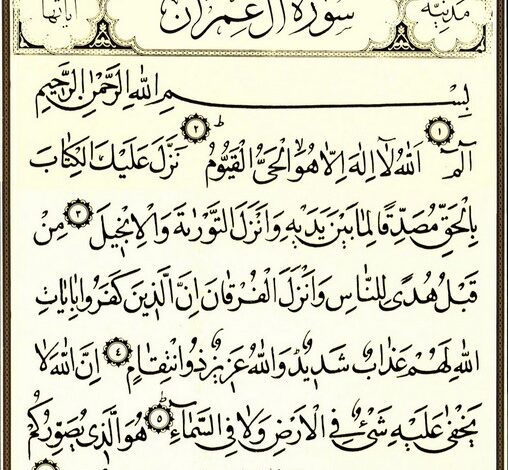 مدنية سورة آل عمران آياتها
بِسْمِ اللّٰهِ الرَّحْمٰنِ الرَّحِيمِ
الٓمٓ ١ اَللّٰهُ لَٓا اِلٰهَ اِلَّا هُوَ الْحَيُّ الْقَيُّومُ ٢ نَزَّلَ عَلَيْكَ الْكِتَابَ
بِالْحَقِّ مُصَدِّقًا لِمَا بَيْنَ يَدَيْهِ وَاَنْزَلَ التَّوْرٰيةَ وَالْاِنْجِيلَ ٣ مِنْ
قَبْلُ هُدًى لِلنَّاسِ وَاَنْزَلَ الْفُرْقَانَ اِنَّ الَّذِينَ كَفَرُوا بِاٰيَاتِ
اللّٰهِ لَهُمْ عَذَابٌ شَدِيدٌ وَاللّٰهُ عَزِيزٌ ذُو انْتِقَامٍ ٤ اِنَّ اللّٰهَ لَا
يَخْفٰى عَلَيْهِ شَيْءٌ فِي الْاَرْضِ وَلَا فِي السَّمَٓاءِ ٥ هُوَ الَّذِي يُصَوِّرُكُمْ